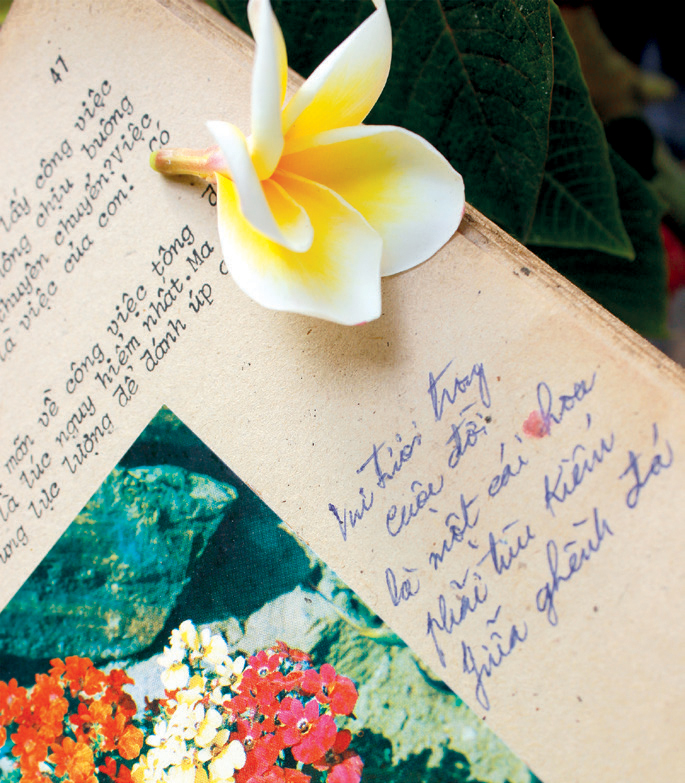 47
lấy công việc
không chịu buông
chuyện chuyển?Việc
là việc của con! Có
mãn về công việc tổng
là lúc nguy hiểm nhất. Ma
lực lượng để đánh úp
Vui tươi trong
cuộc đời
là một cái hoa
phải tìm kiếm
giữa ghềnh đá